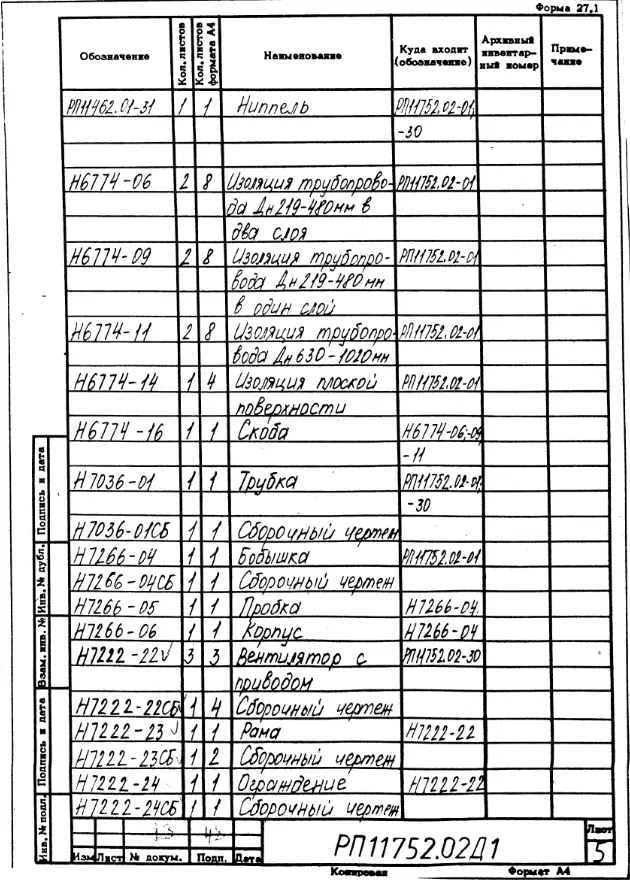 Форма 27,1
Обозначение Кол. листов Кол. листов формата А4 Наименование Куда входит (обозначение) Архивный инвентар-ный номер Приме-чание
РП11462.01-31 1 1 Ниппель РП11752.02-01,
-30
Н6774-06 2 8 Изоляция трубопрово- РП11752.02-01
да Дн219-480мм в
два слоя
Н6774-09 2 8 Изоляция трубопро- РП11752.02-01
вода Дн219-480мм
в один слой
Н6774-11 2 8 Изоляция трубопро- РП11752.02-01
вода Дн630-1020мм
Н6774-14 1 4 Изоляция плоской РП11752.02-01
поверхности
Н6774-16 1 1 Скоба Н6774-06,-09
-11
Н7036-01 1 1 Трубка РП11752.02-01,
-30
Н7036-01СБ 1 1 Сборочный чертеж
Н7266-04 1 1 Бобышка РП11752.02-01
Н7266-04СБ 1 1 Сборочный чертеж
Н7266-05 1 1 Пробка Н7266-04
Н7266-06 1 1 Корпус Н7266-04
Н7222-22 3 3 Вентилятор с РП11752.02-30
приводом
Н7222-22СБ 1 4 Сборочный чертеж
Н7222-23 1 1 Рама Н7222-22
Н7222-23СБ 1 2 Сборочный чертеж
Н7222-24 1 1 Ограждение Н7222-22
Н7222-24СБ 1 1 Сборочный чертеж
Подпись и дата
Инв. № дубл.
Взам. инв. №
Подпись и дата
Инв. № подл.
Изм Лист № докум. Подп. Дата
РП11752.02Д1
Лист
5
Копировал Формат А4